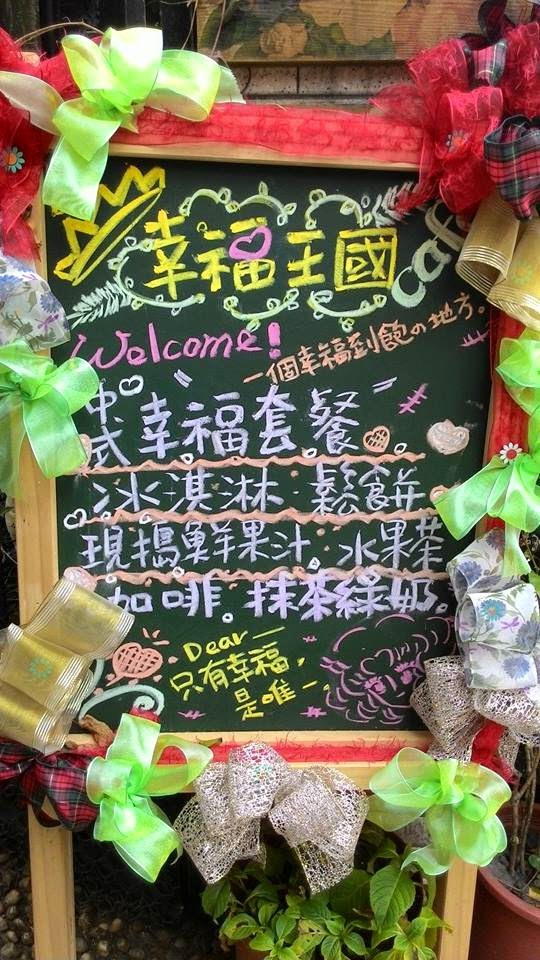 幸福王國
café
Welcome!
一個幸福到飽の地方。
中式幸福套餐
冰淇淋.鬆餅
現搗鮮果汁.水果茶
咖啡.抹茶綠奶。
Dear—
只有幸福，
是唯一。